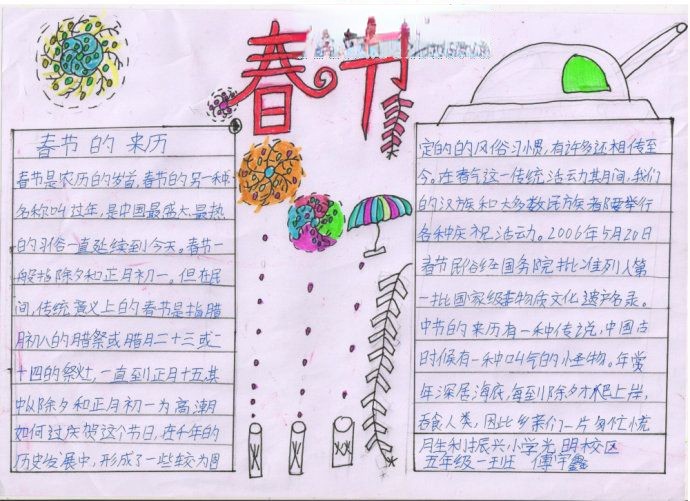 春节
春节的来历
春节是农历的岁首，春节的另一种
名称叫过年，是中国最盛大、最热
的习俗一直延续到今天。春节一
般指除夕和正月初一。但在民
间，传统意义上的春节是指腊
月初八的腊祭或腊月二十三或二
十四的祭灶，一直到正月十五，其
中以除夕和正月初一为高潮
如何过庆贺这个节日，在千年的
历史发展中，形成了一些较为固
定的的风俗习惯，有许多还相传至
今。在春节这一传统活动其月间，我们
的汉族和大多数民族者都要举行
各种庆祝活动。2006年5月20日
春节民俗经国务院批准列入第
一批国家级非物质文化遗产名录。
中节的来历有一种传说，中国古
时候有一种叫气的小怪物。年
年深居海底，每到除夕才爬上岸，
吞食人类，因此乡亲们一片匆忙慌
月生利振兴小学光明校区
五年级一班 傅宇鑫